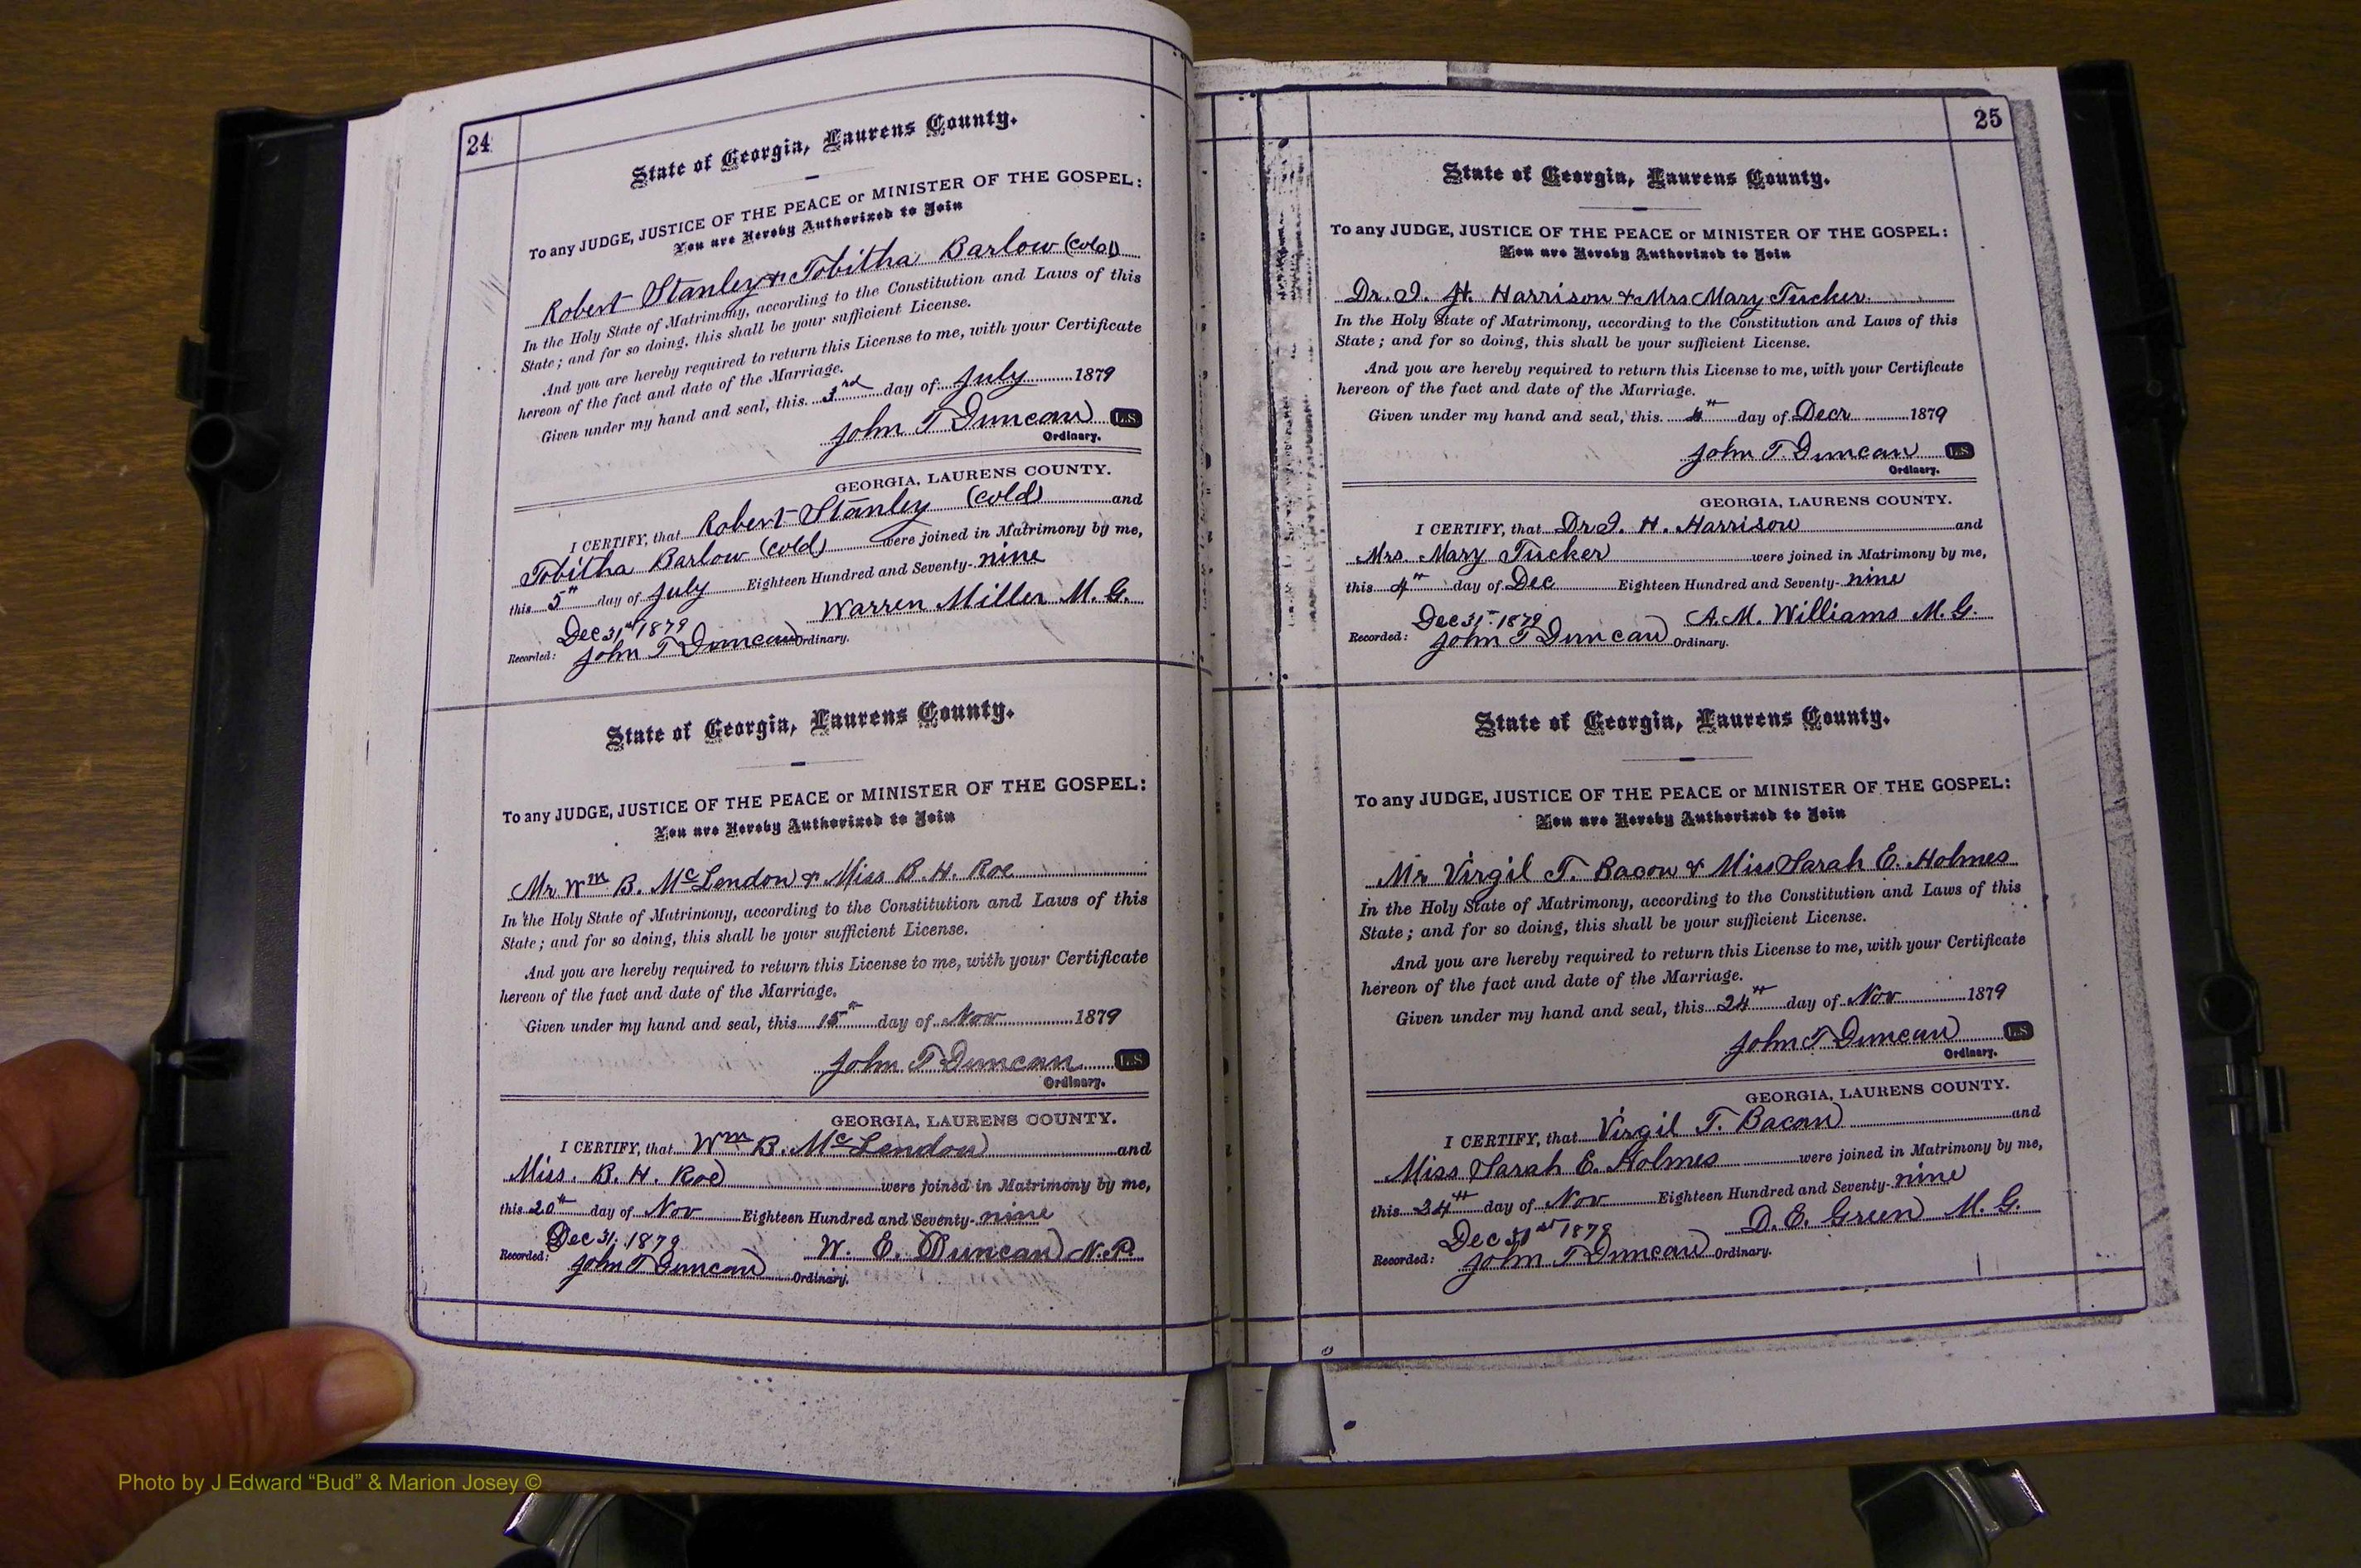 24
State of Georgia, Laurens County.
To any JUDGE, JUSTICE OF THE PEACE or MINISTER OF THE GOSPEL:
You are Hereby Authorized to Join
Robert Stanley & Tobitha Barlow (cold)
In the Holy State of Matrimony, according to the Constitution and Laws of this
State; and for so doing, this shall be your sufficient License.
And you are hereby required to return this License to me, with your Certificate
hereon of the fact and date of the Marriage.
Given under my hand and seal, this 3rd day of July 1879
John T Duncan L.S
Ordinary.
GEORGIA, LAURENS COUNTY.
I CERTIFY, that Robert Stanley (cold) and
Tobitha Barlow (cold) were joined in Matrimony by me,
this 5th day of July Eighteen Hundred and Seventy-nine
Warren Miller M. G.
Dec 31st 1879
Recorded: John T Duncan Ordinary.
State of Georgia, Laurens County.
To any JUDGE, JUSTICE OF THE PEACE or MINISTER OF THE GOSPEL:
You are Hereby Authorized to Join
Mr Wm B. McLendon & Miss B. H. Roe
In the Holy State of Matrimony, according to the Constitution and Laws of this
State; and for so doing, this shall be your sufficient License.
And you are hereby required to return this License to me, with your Certificate
hereon of the fact and date of the Marriage.
Given under my hand and seal, this 15th day of Nov 1879
John T Duncan L.S
Ordinary.
GEORGIA, LAURENS COUNTY.
I CERTIFY, that Wm B. McLendon and
Miss. B. H. Roe were joined in Matrimony by me,
this 20th day of Nov Eighteen Hundred and Seventy-nine
Dec 31. 1879 W. E. Duncan N.P.
Recorded: John T Duncan Ordinary.
25
State of Georgia, Laurens County.
To any JUDGE, JUSTICE OF THE PEACE or MINISTER OF THE GOSPEL:
You are Hereby Authorized to Join
Dr. I. H. Harrison & Mrs Mary Tucker
In the Holy State of Matrimony, according to the Constitution and Laws of this
State; and for so doing, this shall be your sufficient License.
And you are hereby required to return this License to me, with your Certificate
hereon of the fact and date of the Marriage.
Given under my hand and seal, this 4th day of Decr 1879
John T. Duncan L.S
Ordinary.
GEORGIA, LAURENS COUNTY.
I CERTIFY, that Dr I. H. Harrison and
Mrs. Mary Tucker were joined in Matrimony by me,
this 4th day of Dec Eighteen Hundred and Seventy-nine
Dec 31st 1879 A. M. Williams M. G.
Recorded: John T Duncan Ordinary.
State of Georgia, Laurens County.
To any JUDGE, JUSTICE OF THE PEACE or MINISTER OF THE GOSPEL:
You are Hereby Authorized to Join
Mr Virgil T. Bacon & Miss Sarah E. Holmes
In the Holy State of Matrimony, according to the Constitution and Laws of this
State; and for so doing, this shall be your sufficient License.
And you are hereby required to return this License to me, with your Certificate
hereon of the fact and date of the Marriage.
Given under my hand and seal, this 24th day of Nov 1879
John T Duncan L.S
Ordinary.
GEORGIA, LAURENS COUNTY.
I CERTIFY, that Virgil T. Bacon and
Miss Sarah E. Holmes were joined in Matrimony by me,
this 24th day of Nov Eighteen Hundred and Seventy-nine
Dec 31st 1879 D. E. Green M. G.
Recorded: John T Duncan Ordinary.
Photo by J Edward “Bud” & Marion Josey ©